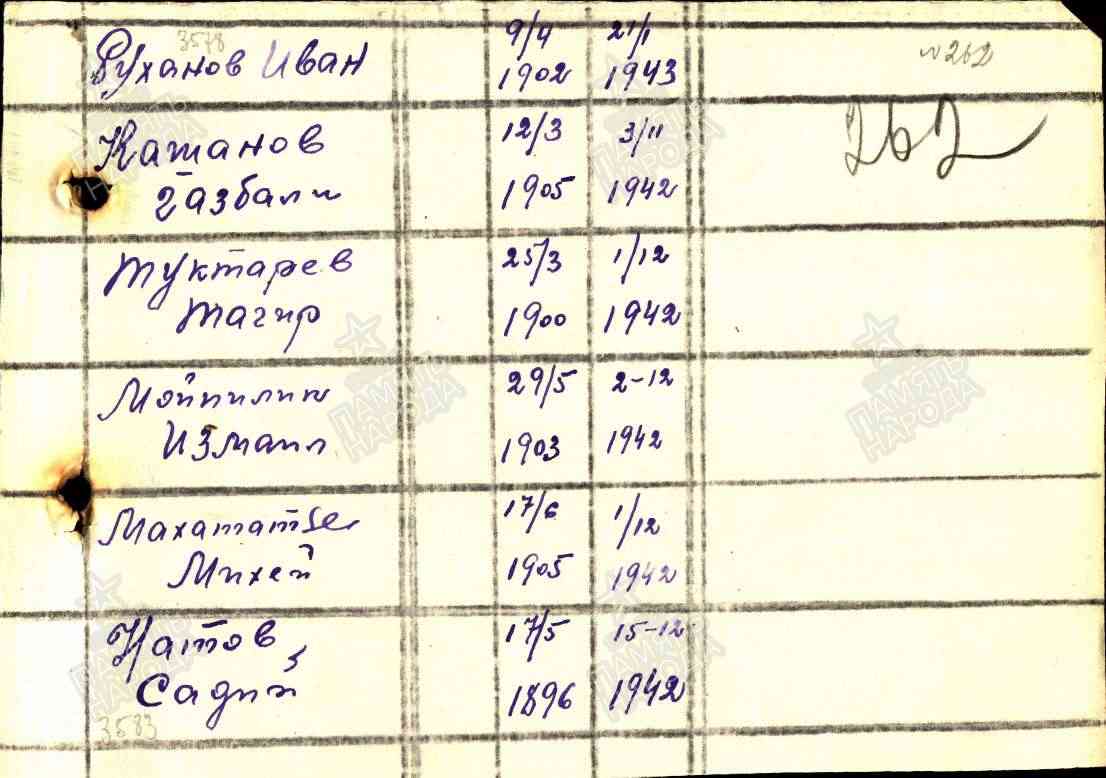 3578
Руханов Иван 9/4 1902 21/1 1943
№ 262
262
Катанов 12/3 3/11
Газбали 1905 1942
Туктарев 25/3 1/12
Тагир 1900 1942
Мойпилин 29/5 2-12
Измаил 1903 1942
17/6 1/12
Михей 1905 1942
Натов, 17/5 15-12
Садий 1896 1942
3583
ПАМЯТЬ
НАРОДА